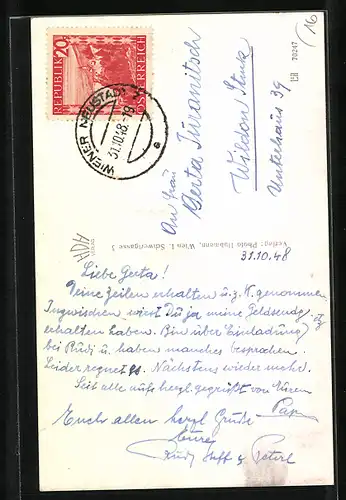 16
70247
REPUBLIK
20
ÖSTERREICH
WIENER NEUSTADT
31.10.48.-19
e
An Frau
Gerta
Wildon
Unterhaus 39
Verlag: Photo Hubmann, Wien I. Schwertgasse 3
31.10.48
Liebe Gerta!
Deine Zeilen erhalten u. z. K. genommen
Inzwischen wirst Du ja meine Geldsendg.
erhalten haben. Bin über Einladung
bei Rudi u. haben manches besprochen.
Leider regnet es. Nächstens wieder mehr.
Seid alle aufs herzl. gegrüßt von Euren
Papa
Euch allen herzl Grüße
Eure
Rudi Steff &